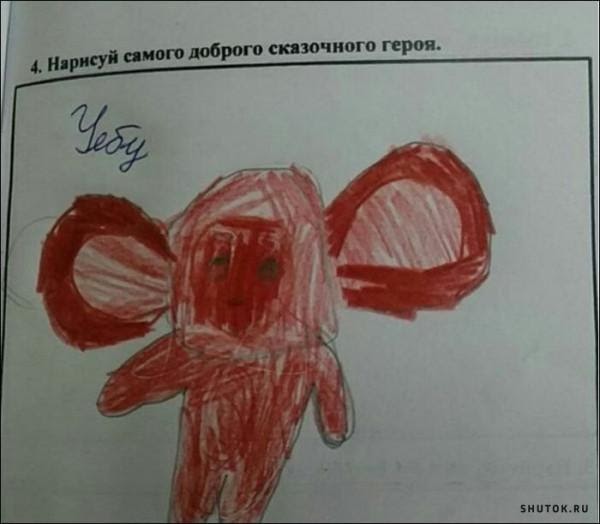 4. Нарисуй самого доброго сказочного героя.
Чебу
SHUTOK.RU